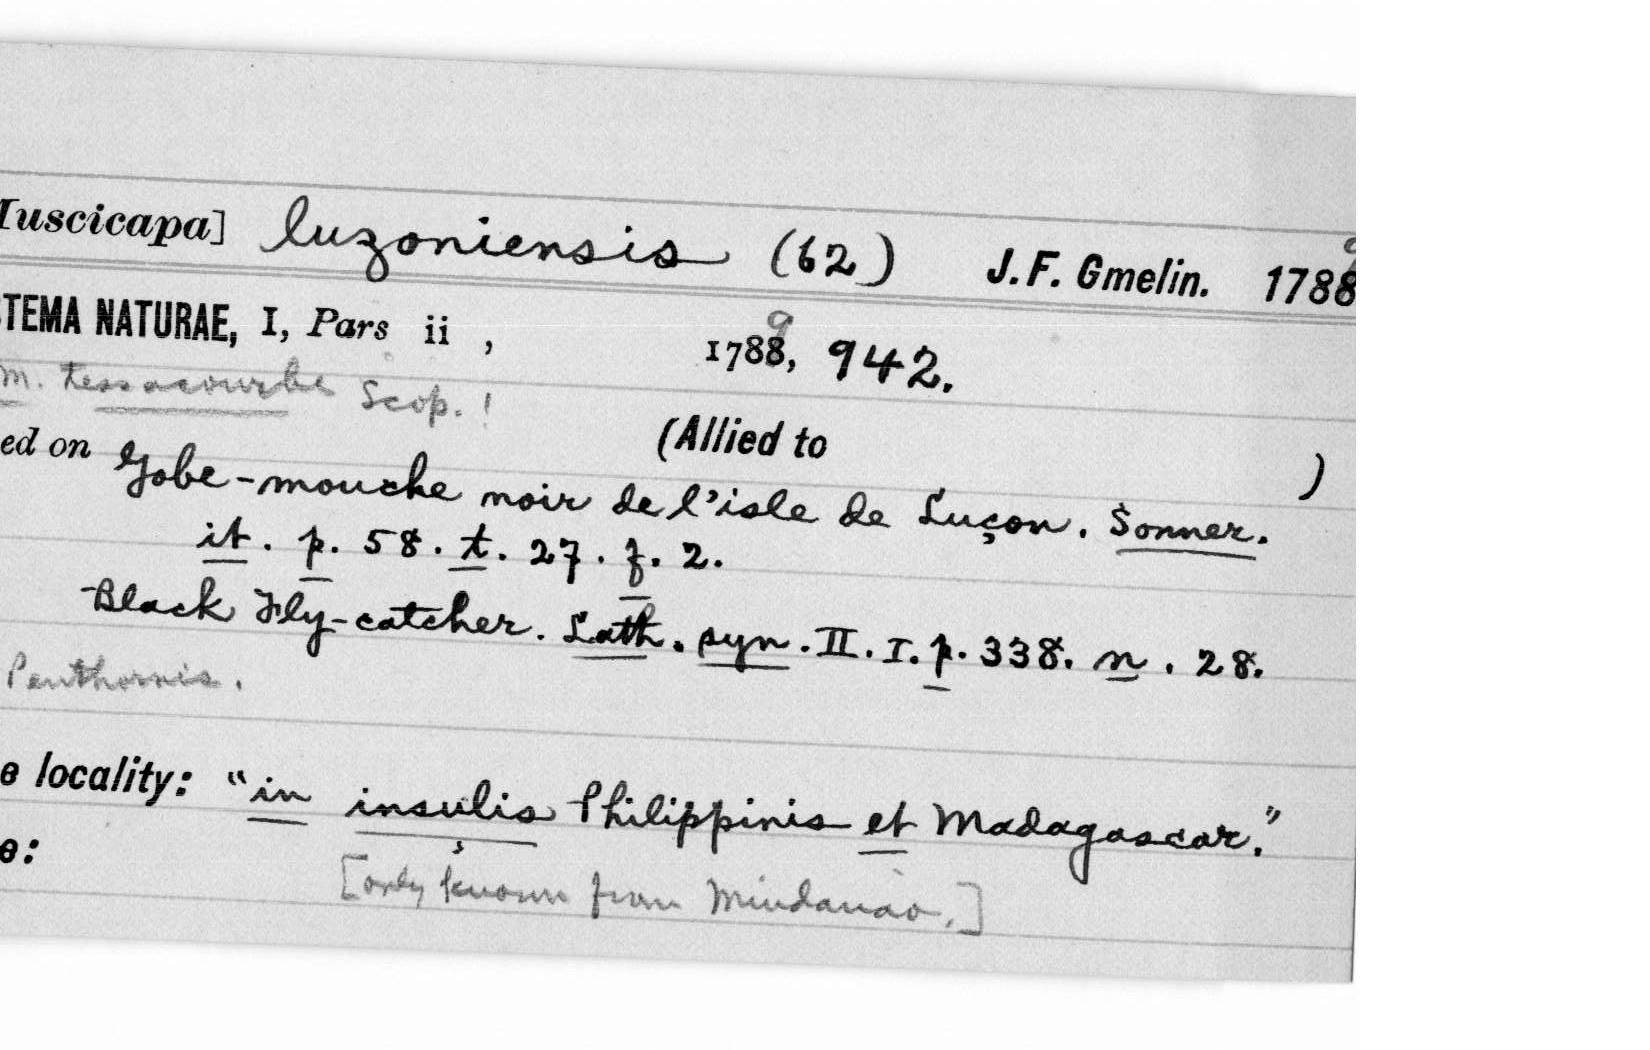 [uscicapa] luzoniensis (62) J.F. Gmelin. 1788 9
TEMA NATURAE, I, Pars ii , 1788, 9 942.
m. tessacourbe Scop. !
ed on (Allied to )
Gobe-mouche noir de l'isle de Luçon. Sonner.
it. p. 58. t. 27. f. 2.
Black Fly-catcher. Lath. syn. II. I. p. 338. n. 28.
Penthornis.
e locality: "in insulis Philippinis et Madagascar."
e:
[only known from Mindanao.]